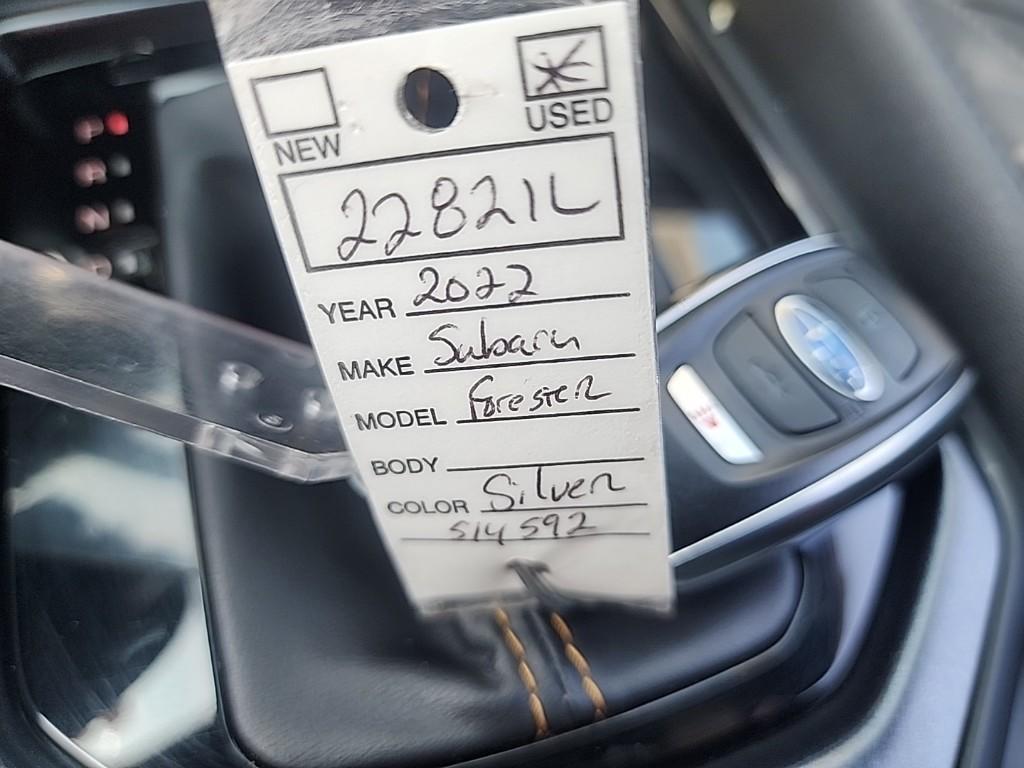 NEW
USED
22821L
YEAR 2022
MAKE Subaru
MODEL ForesteR
BODY
COLOR SilveR
514592
P
R
N